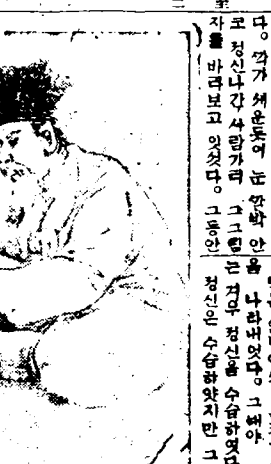 다。 깍가 세운듯이 눈 깜박 안
코 정신나간사람가티 그그림
자를 바라보고 잇섯다。 그동안
나타내엇다。 그때야
는 겨우 정신을 수습하엿다
정신은 수습하얏지만 그